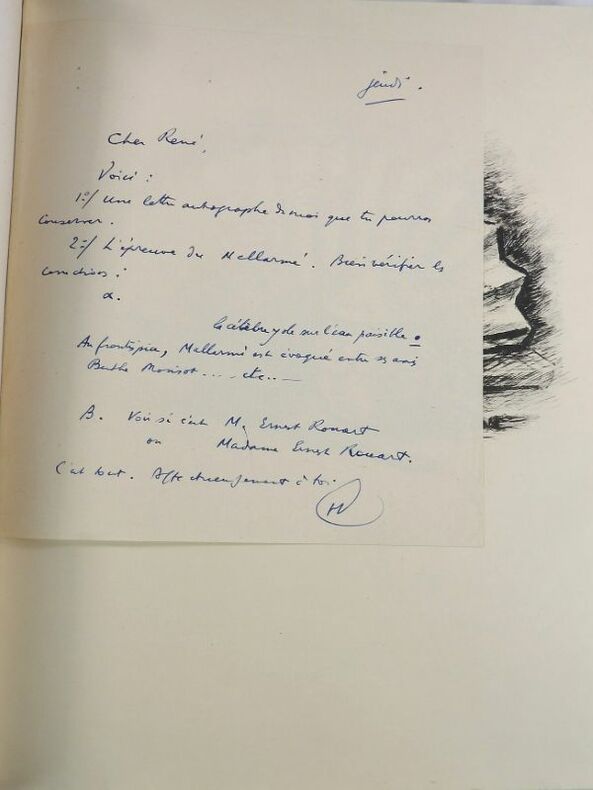 jeudi.
Cher René,
Voici :
1º/ une lettre autographe de moi que tu pourras
conserver.
2º/ L'épreuve du Mallarmé. Bien vérifier les
corrections :
α.
la célèbre yole sur l'eau paisible.
Au frontispice, Mallarmé est évoqué entre ses amis
Berthe Morisot .... etc...
B. Voir si c'est M. Ernest Rouart
ou Madame Ernest Rouart.
C'est tout. Affectueusement à toi.